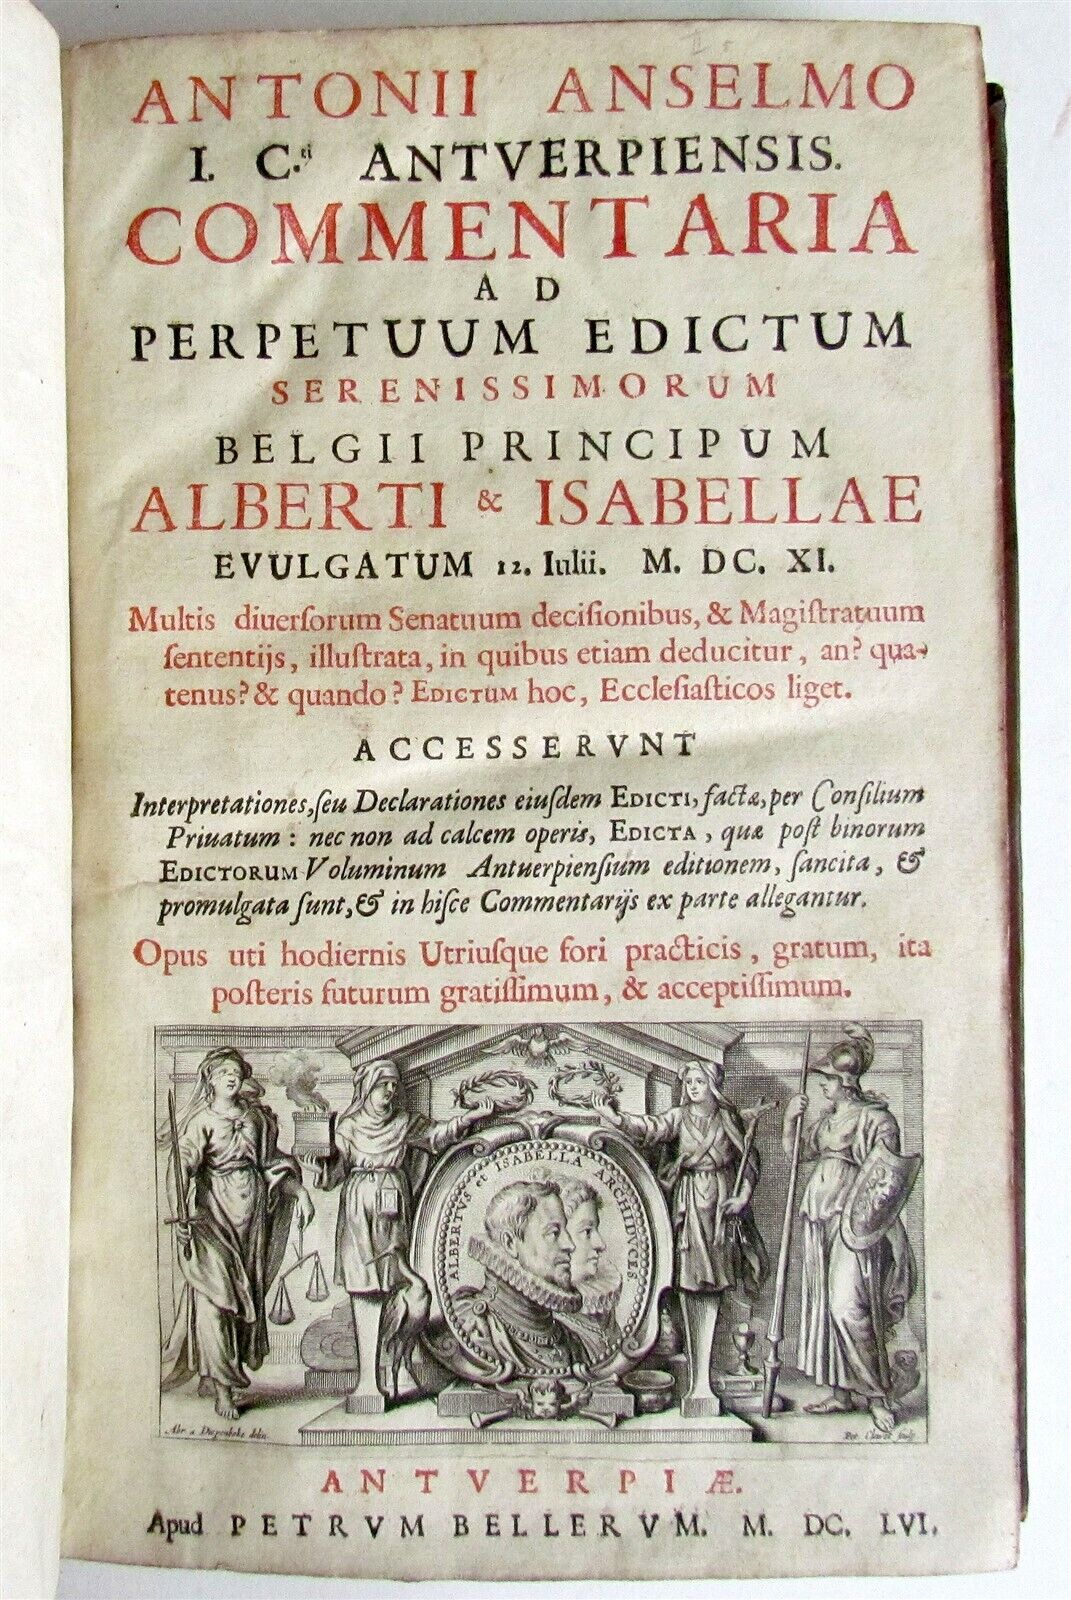 ANTONII ANSELMO
I. C.ti ANTVERPIENSIS.
COMMENTARIA
AD
PERPETUUM EDICTUM
SERENISSIMORUM
BELGII PRINCIPUM
ALBERTI & ISABELLAE
EVULGATUM 12. Iulii. M. DC. XI.
Multis diuerſorum Senatuum deciſionibus, & Magiſtratuum
ſententijs, illuſtrata, in quibus etiam deducitur, an? qua-
tenus? & quando? EDICTUM hoc, Eccleſiaſticos liget.
ACCESSERVNT
Interpretationes, ſeu Declarationes eiuſdem EDICTI, factæ, per Conſilium
Priuatum: nec non ad calcem operis, EDICTA, quæ poſt binorum
EDICTORUM Voluminum Antuerpienſium editionem, ſancita, &
promulgata ſunt, & in hiſce Commentarijs ex parte allegantur.
Opus uti hodiernis Utriuſque fori practicis, gratum, ita
poſteris futurum gratiſſimum, & acceptiſſimum.
ALBERTVS et ISABELLA ARCHIDVCES.
Abr. a Diepenbeke delin.
Pet. Clouet sculp.
ANTVERPIÆ.
Apud PETRVM BELLERVM. M. DC. LVI.